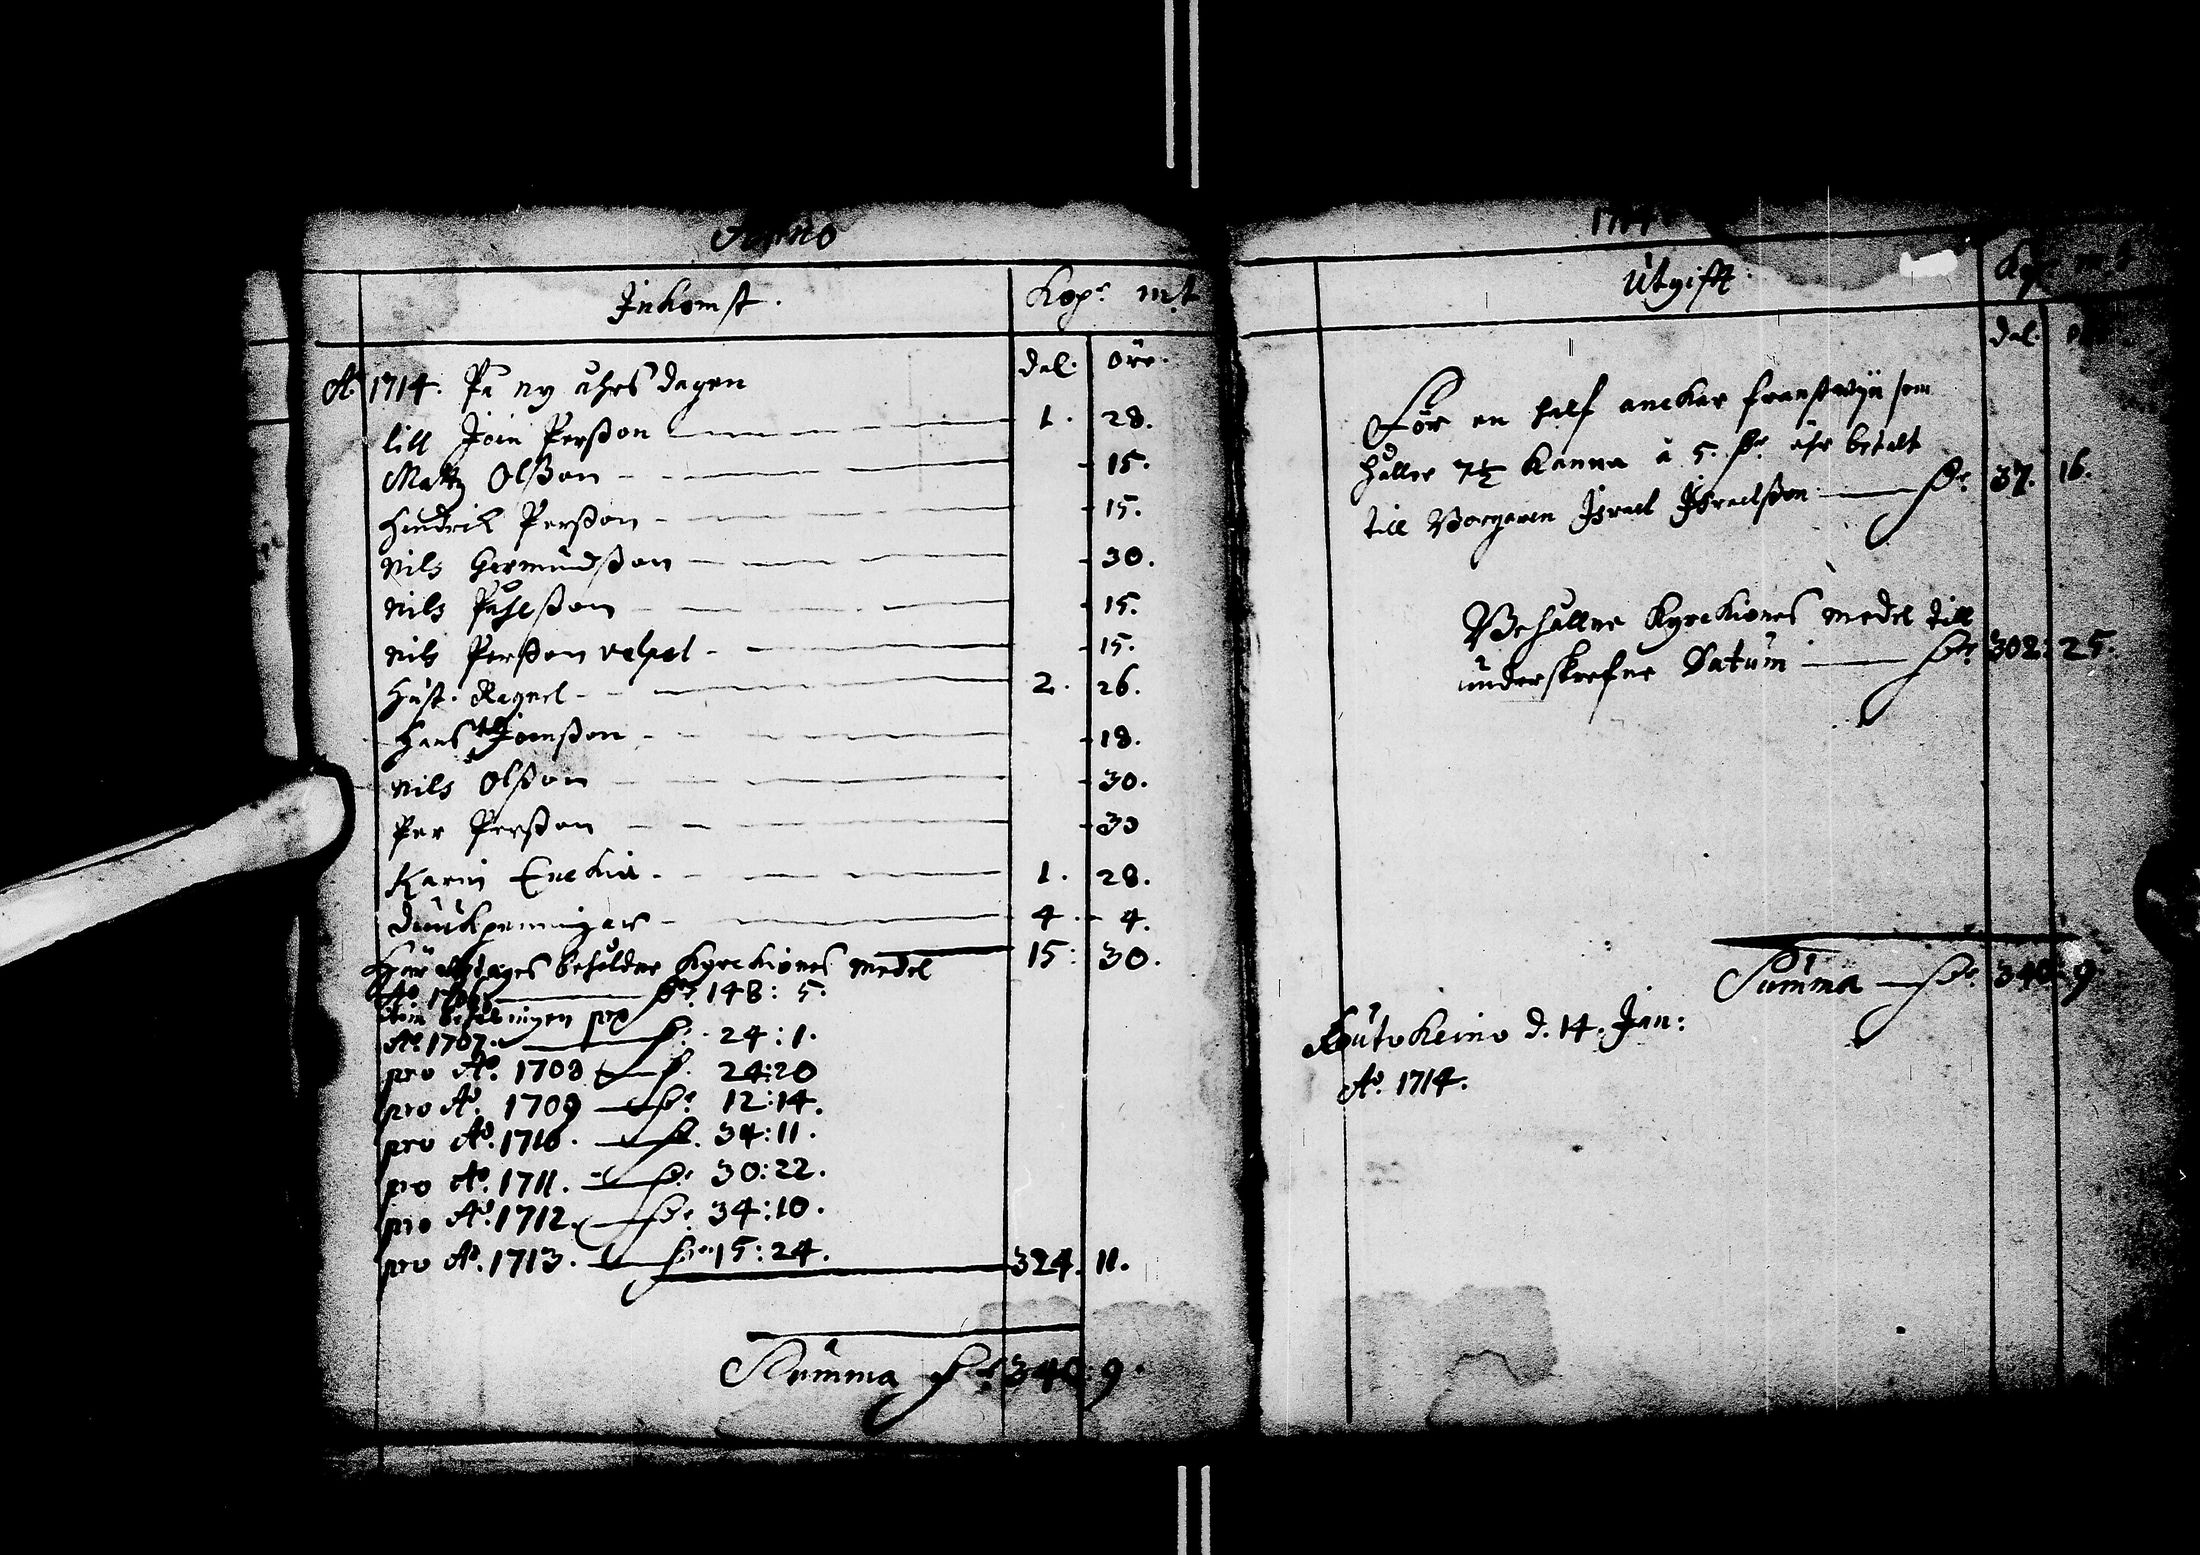 Anno
Inkomst. Kopr mt
dal. öre.
Ao 1714. På ny åhrs dagen
lill Join Perßon 1. 28.
Matts Olßon 15.
Hendrik Perßon 15.
Nils Germundßon 30.
Nils Påhlßon 15.
Nils Perßon valpal 15.
Hust. Ragnel 2. 26.
Hans Joenßon 18.
Nils Olßon 30.
Per Perßon 30
Karin Enckia 1. 28.
Danckpenningar 4. 4.
15: 30.
Här behåldne Kyrckiones medel
Ao 148: 5.
behålningen pro
Ao 1707. 24:1.
pro Ao. 1708 24:20
pro Ao. 1709 12:14.
pro Ao. 1710. 34:11.
pro Ao. 1711. 30:22.
pro Ao. 1712. 34:10.
pro Ao. 1713. 15:24. 324. 11.
Summa 340: 9.
1714
Utgifft. Kopr mt
dal. öre
För en half anckar franswijn som
håller 7½ Kanna à 5. åhr betalt
till Borgaren Israel Israelßon 37. 16.
Behållne Kyrckiones medel till
underskrefne Datum 302: 25.
Summa 340: 9.
Koutokeino d. 14. Jan:
Ao. 1714.